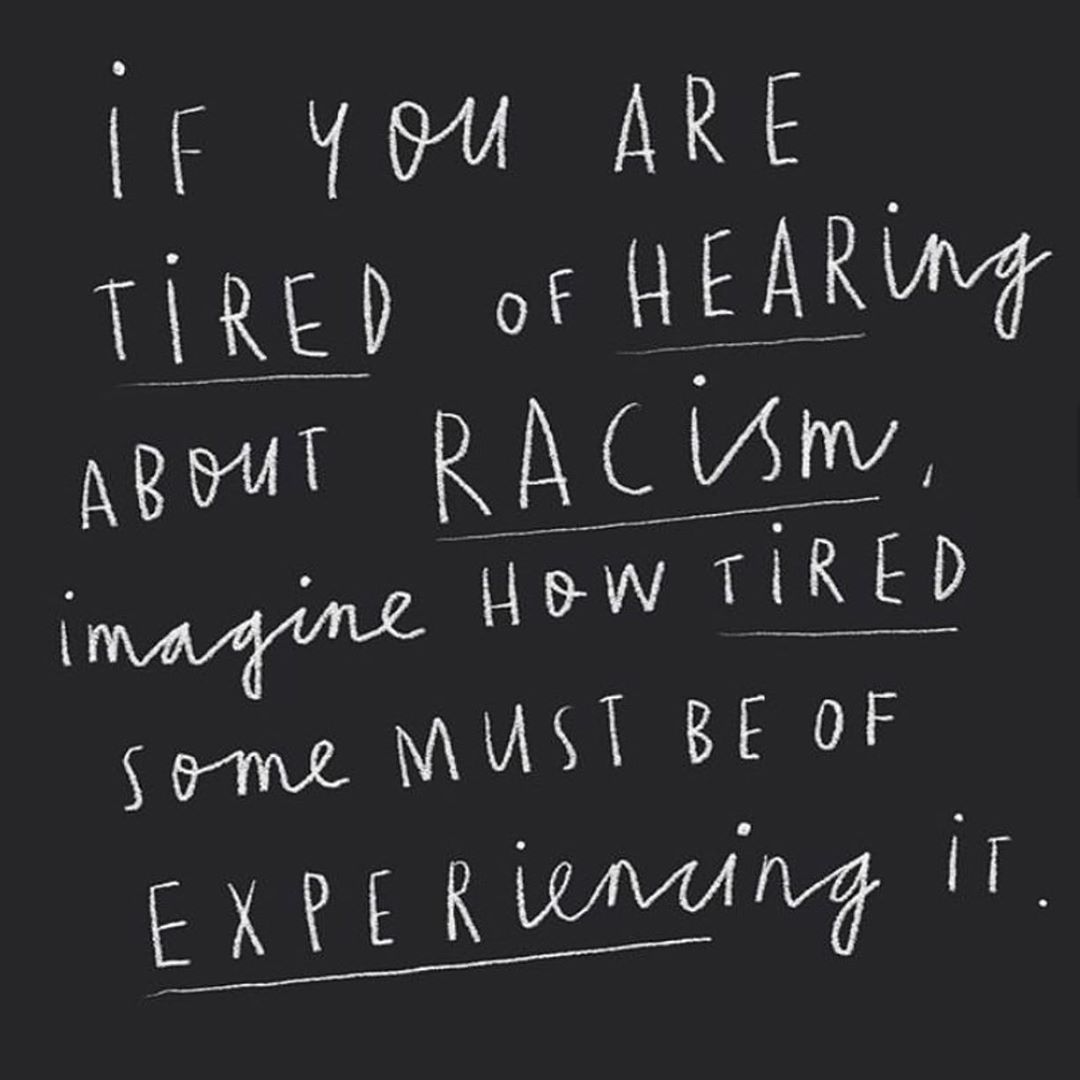 iF YOU ARE
TiRED OF HEARing
ABOUT RACism,
imagine HOW TiRED
some MUST BE OF
EXPERiencing iT.